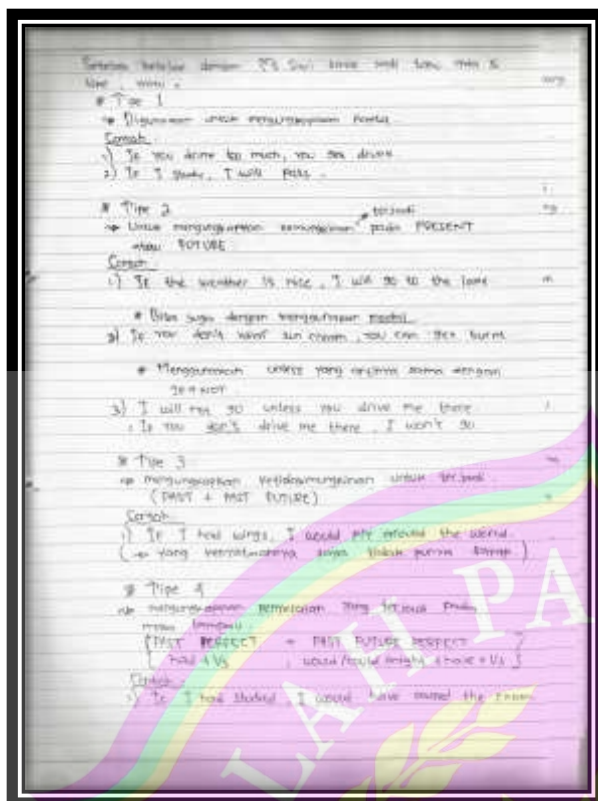 Setelah belajar dengan
# Tipe 1
Digunakan untuk mengungkapkan
Contoh
1) If you drink too much, you get drunk
2) If I study, I will pass.
# Tipe 2
Untuk mengungkapkan kemungkinan terjadi pada PRESENT
atau FUTURE
Contoh
1) If the weather is nice, I will go to the
* Bisa juga dengan menggunakan modal
2) If you don't want sun cream, you can get burnt
* Menggunakan unless yang artinya sama dengan
IF + NOT
3) I will not go unless you drive me there
: If you don't drive me there, I won't go
# Tipe 3
mengungkapkan ketidakmungkinan untuk terjadi
(PAST + PAST FUTURE)
Contoh
1) If I had wings, I would fly around the world.
( yang kenyataannya saya tidak punya sayap )
# Tipe 4
mengungkapkan penyesalan yang terjadi pada
masa lampau.
PAST PERFECT + PAST FUTURE PERFECT
had + V3 , would/could/might + have + V3
Contoh
1) If I had studied, I would have passed the exam
LAH PA